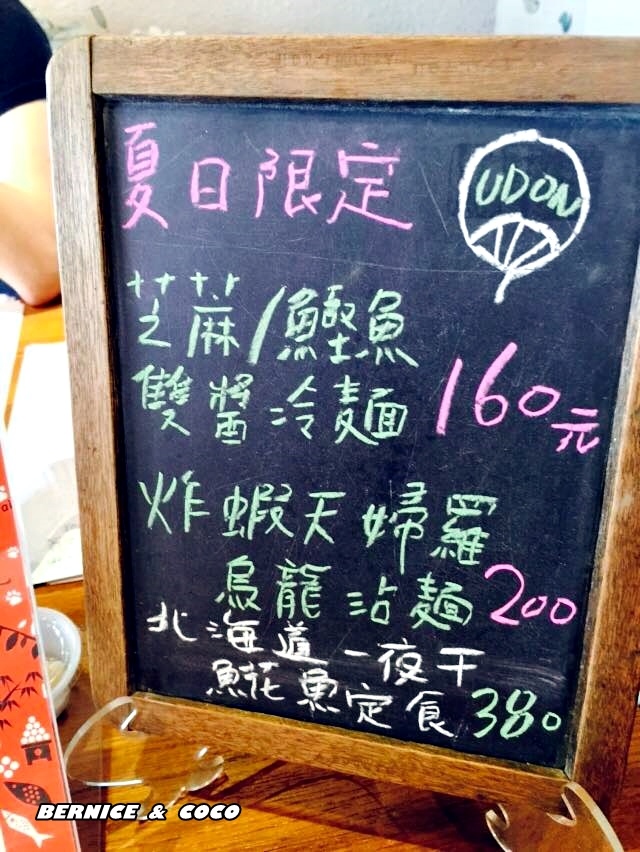 夏日限定
UDON
芝蔴/鰹魚
雙醬冷麵 160元
炸蝦天婦羅
烏龍沾麵 200
北海道一夜干
鯱魚定食 380
BERNICE & COCO